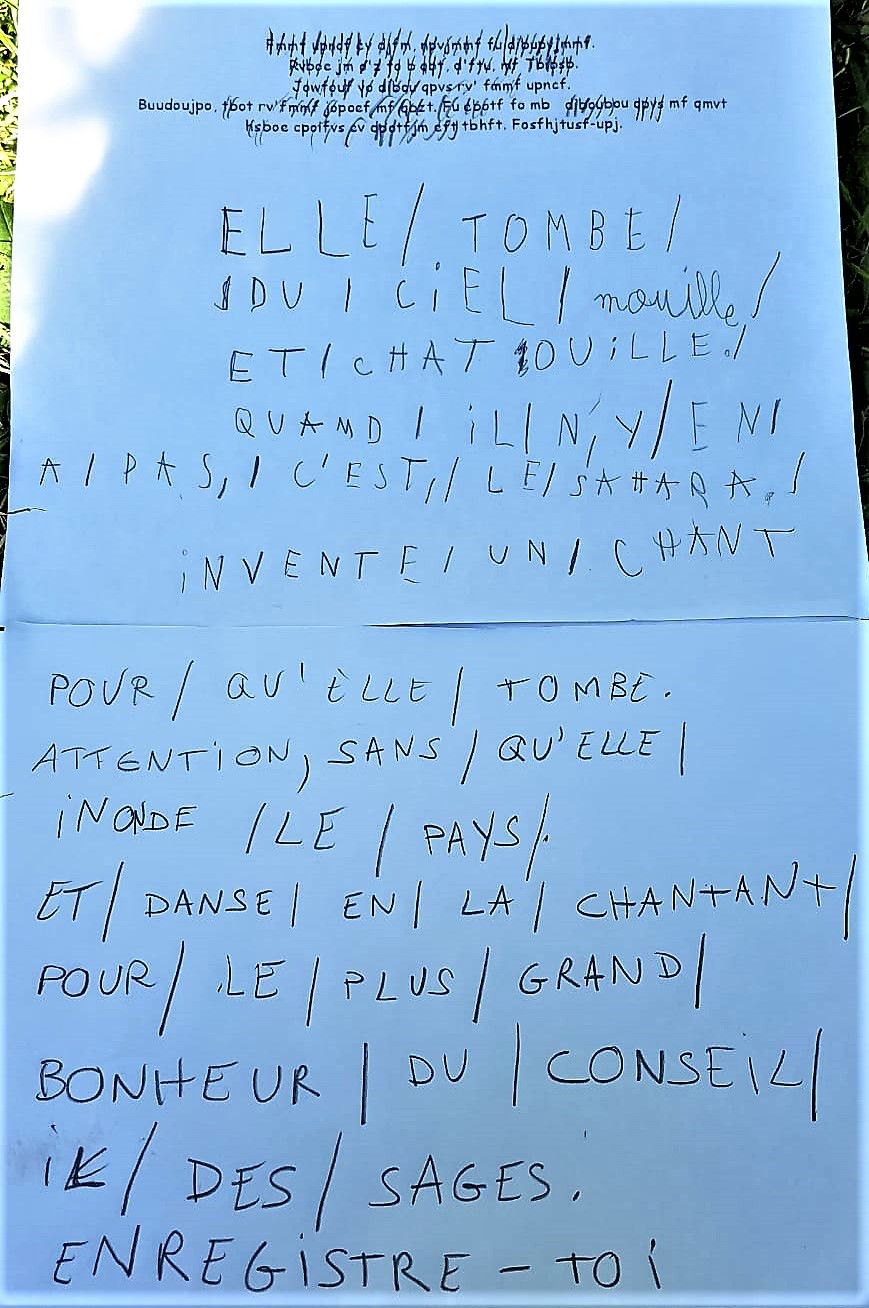 Fmmf upncf ev djfm, npvjmmf fu dibupvjmmf.
Rvboe jm o'z fo b qbt, d'ftu, mf Tbibsb.
Jowfouf vo dibou qpvs rv' fmmf upncf.
Buudoujpo, tbot rv'fmmf jopoef mf qbzt. Fu ebotf fo mb diboubou qpvs mf qmvt
Hsboe cpoifvs ev dpotfjm eft tbhft. Fosfhjtusf-upj.
ELLE/ TOMBE/
DU / CiEL/ mouille/
ET/CHAT OUiLLE./
QUAND / iL/ N'Y/ EN/
A / PAS,/ C'EST,// LE/ SAHARA./
iNVENTE/ UN/ CHANT
POUR/ QU'ELLE/ TOMBE.
ATTENTiON, SANS / QU'ELLE/
iNONDE /LE / PAYS/.
ET/ DANSE/ EN/ LA/ CHANTANT/
POUR/ LE / PLUS / GRAND/
BONHEUR / DU / CONSEiL/
/ DES/ SAGES.
ENREGiSTRE - TOi